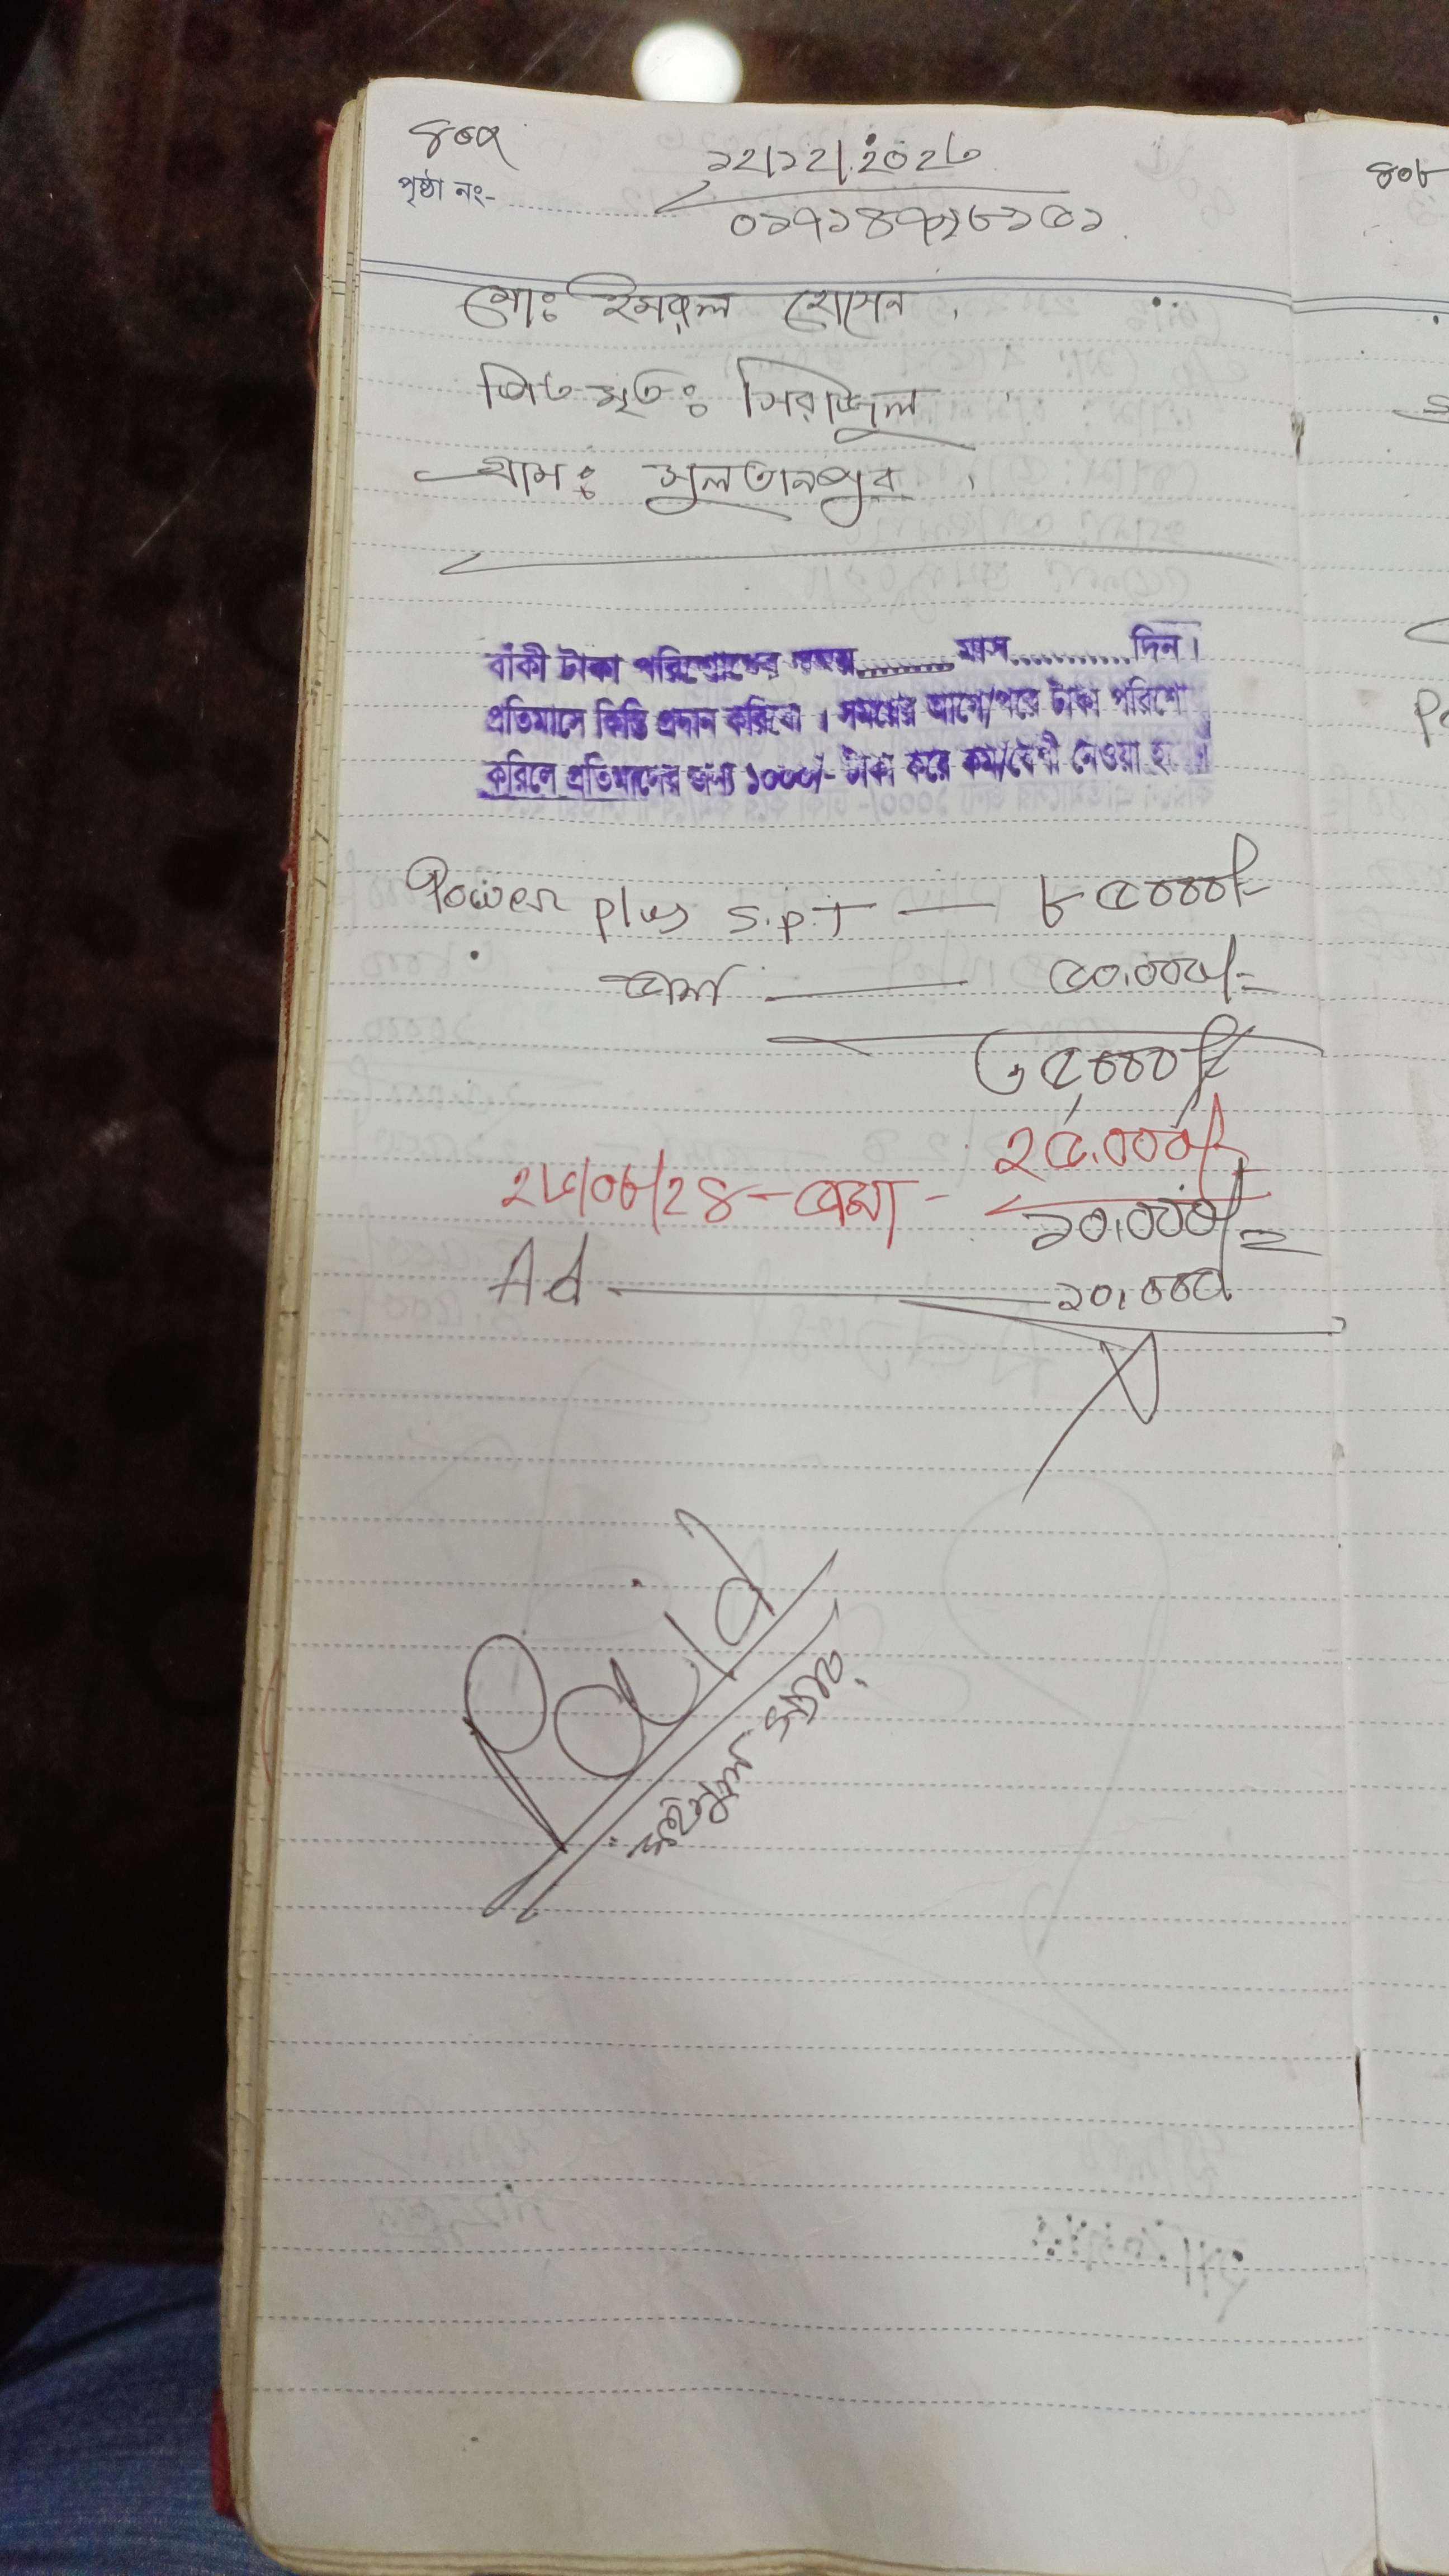 ৪০৭
পৃষ্ঠা নং-
১২/১২/২০২৩
০১৭১৪৭২৮১৫১
মোঃ ইমরুল হোসেন
পিতা মৃতঃ সিরাজুল
গ্রামঃ সুলতানপুর
বাঁকী টাকা পরিশোধের সময়.........মাস...........দিন।
প্রতিমাসে কিস্তি প্রদান করিবো। সময়ের আগে/পরে টাকা পরিশো
করিলে প্রতিমাসের জন্য ১০০০/- টাকা করে কম/বেশী নেওয়া হ
Power plus S.P.T — ৮৫০০০/-
জমা — ৫০,০০০/=
৩৫,০০০/=
২৫/০৮/২৪ - জমা - ২৫,০০০/=
১০,০০০/=
Ad — ১০,০০০
Paid
৪০৮